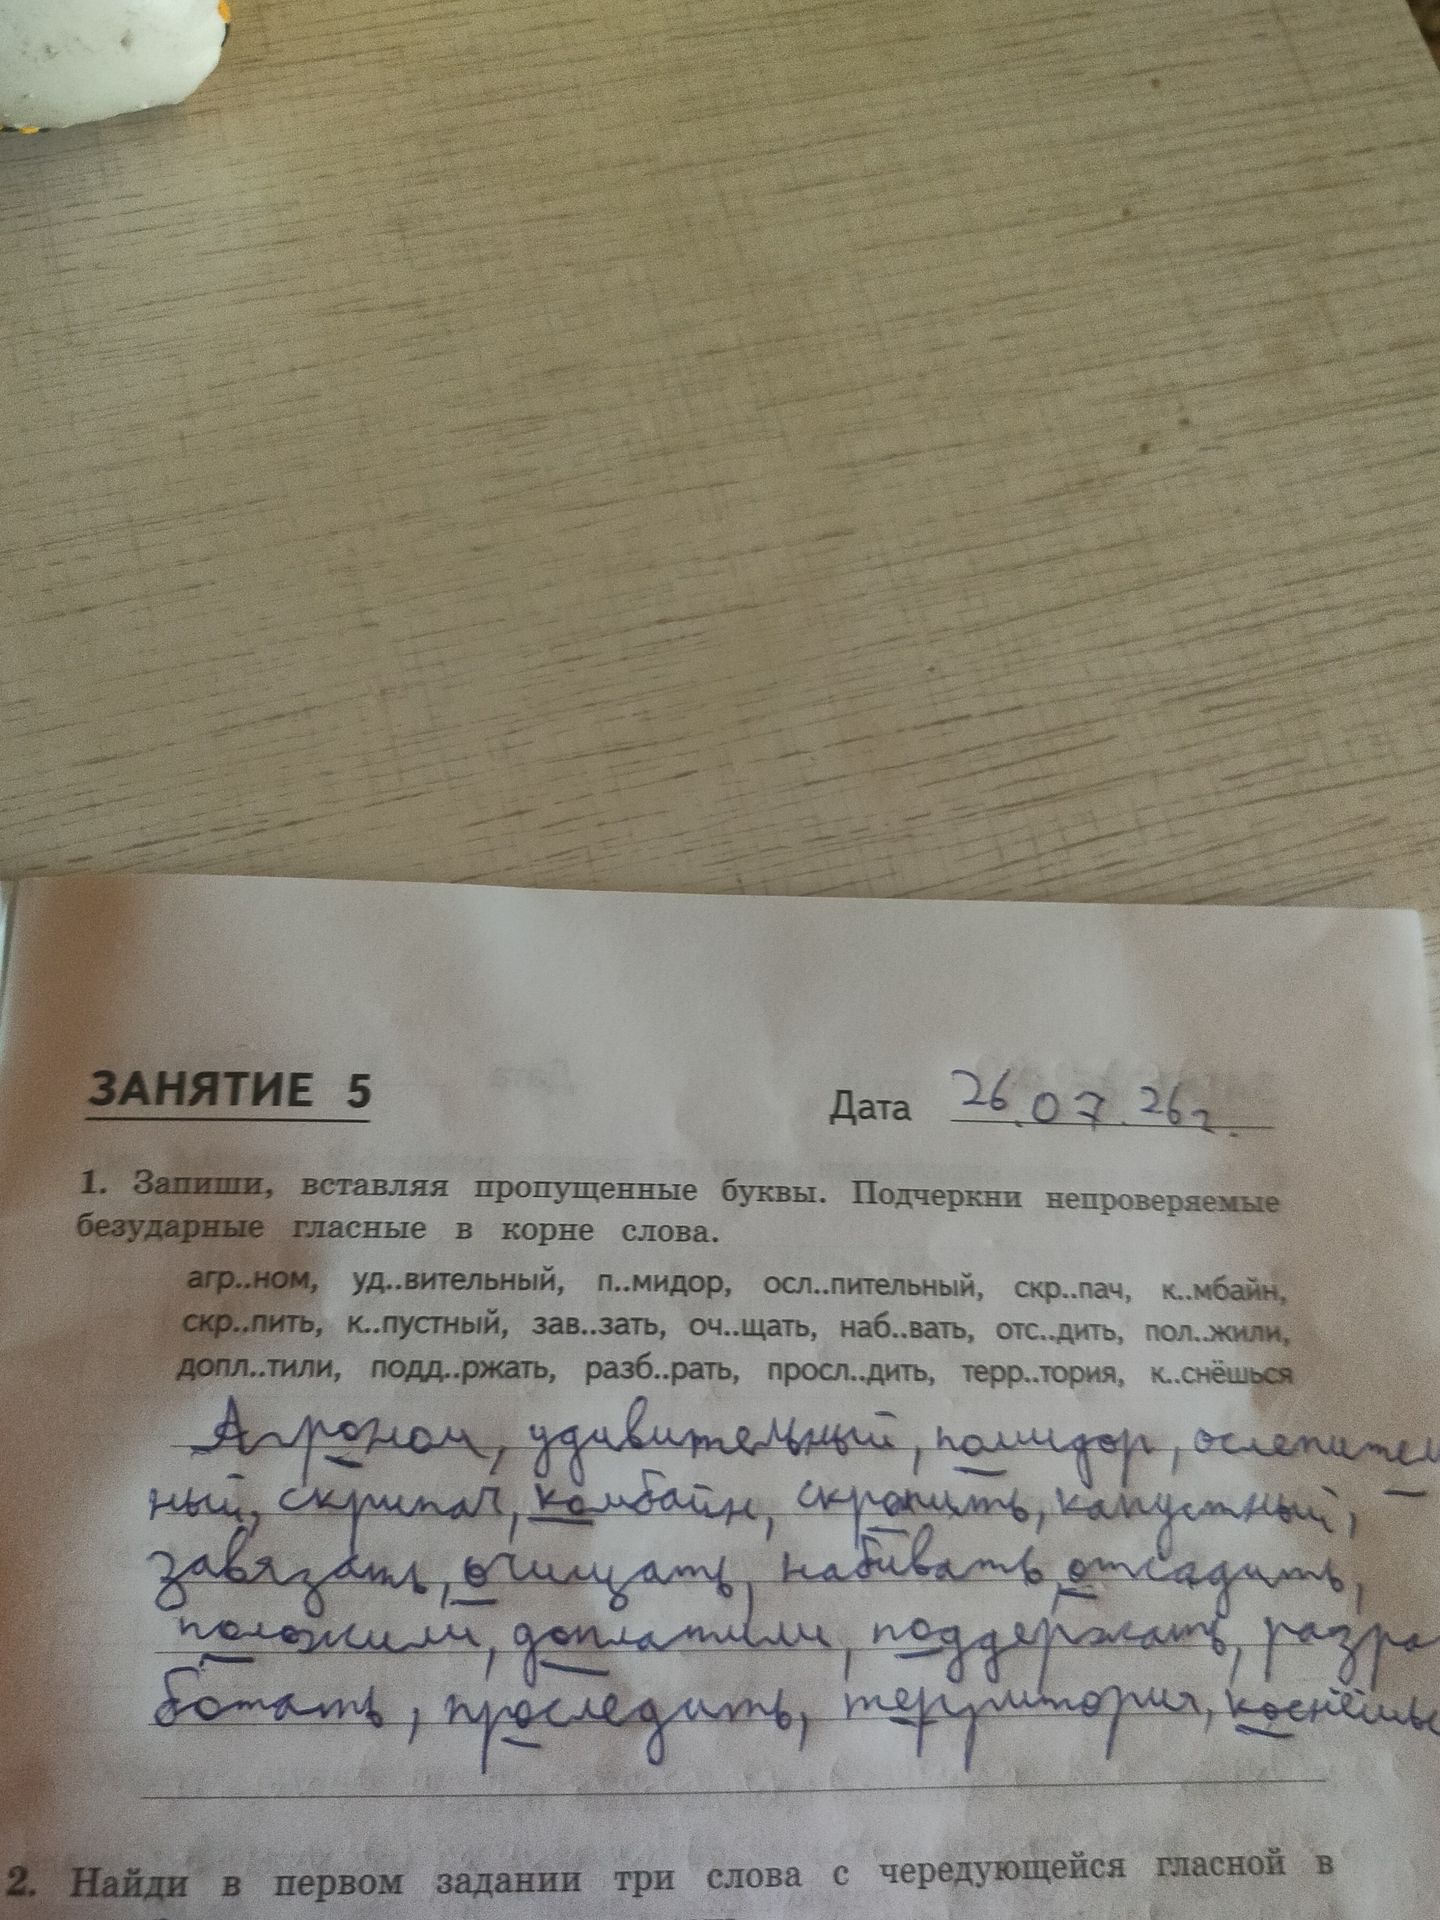 ЗАНЯТИЕ 5
Дата 26.07.26г.
1. Запиши, вставляя пропущенные буквы. Подчеркни непроверяемые
безударные гласные в корне слова.
агр..ном, уд..вительный, п..мидор, осл..пительный, скр..пач, к..мбайн,
скр..пить, к..пустный, зав..зать, оч..щать, наб..вать, отс..дить, пол..жили,
допл..тили, подд..ржать, разб..рать, просл..дить, терр..тория, к..снёшься
Агроном, удивительный, помидор, ослепитель
ный, скрипач, комбайн, скропить, капустный,
завязать, очищать, набивать, отсадить,
положили, доплатили, поддержать, разра
ботать, проследить, территория, коснёшьс
2. Найди в первом задании три слова с чередующейся гласной в